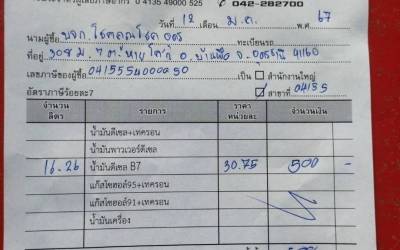 0 4135 49000 525 042-282700
วันที่ 12 เดือน ม.ค. พ.ศ. 67
นามผู้ซื้อ บจก. โชคคูณโชค อุดร ทะเบียนรถ
ที่อยู่ 308 ม.7 ต.หายโศก อ.บ้านผือ จ.อุดรธานี 41160
เลขภาษีของผู้ซื้อ 0415554000050 เป็น สำนักงานใหญ่
อัตราภาษีร้อยละ7 สาขาที่ 04155
จำนวน ลิตร รายการ ราคา หน่วยละ จำนวนเงิน
น้ำมันดีเซล+เทครอน
น้ำมันพาวเวอร์ดีเซล
16.26 น้ำมันดีเซล B7 30.75 500 -
แก๊สโซฮอล์95+เทครอน
แก๊สโซฮอล์91+เทครอน
น้ำมันเครื่อง